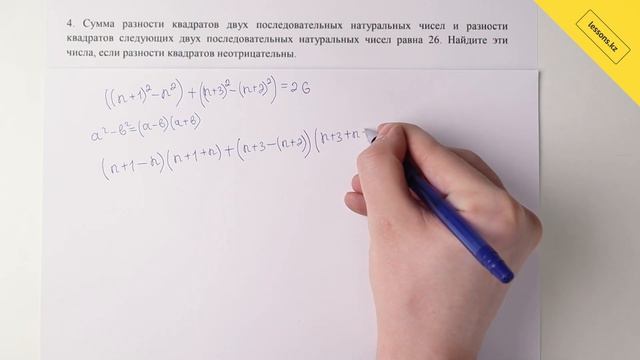 4. Сумма разности квадратов двух последовательных натуральных чисел и разности
квадратов следующих двух последовательных натуральных чисел равна 26. Найдите эти
числа, если разности квадратов неотрицательны.
((n+1)²-n²)+((n+3)²-(n+2)²)=26
a²-b²=(a-b)(a+b)
(n+1-n)(n+1+n)+(n+3-(n+2))(n+3+n-
lessons.kz